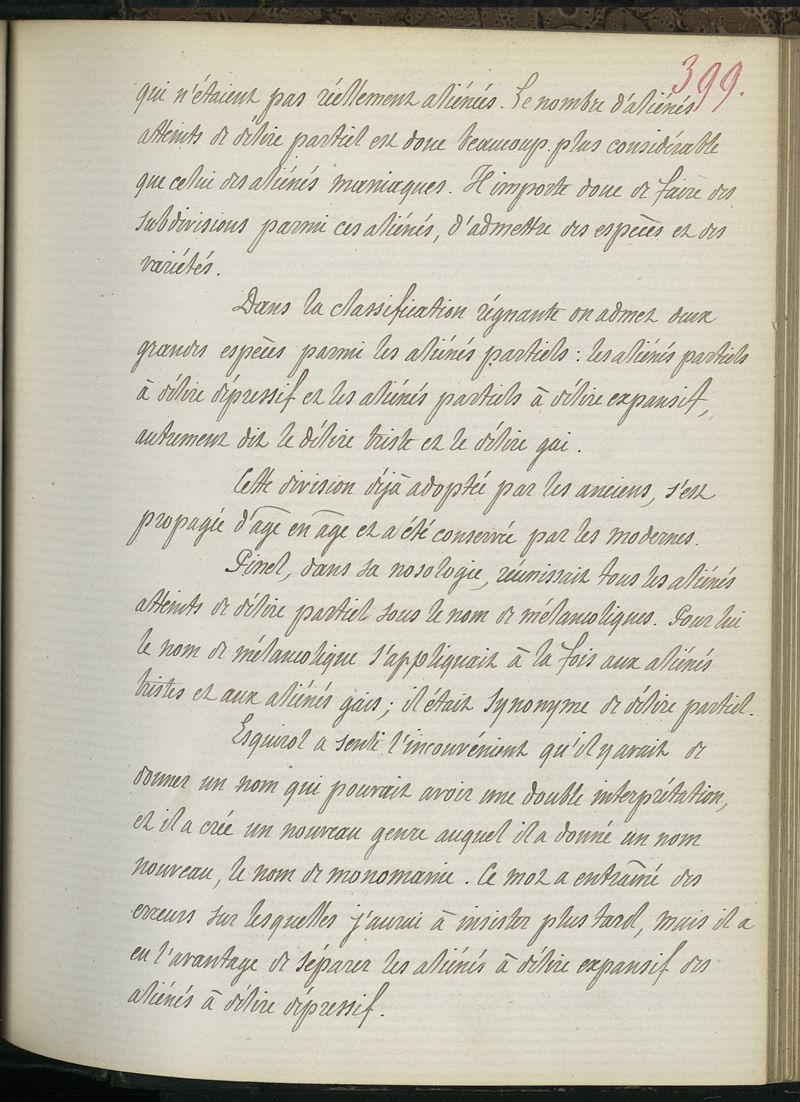 399.
qui n'étaient pas réellement aliénés. Le nombre d'aliénés
atteints de délire partiel est donc beaucoup plus considérable
que celui des aliénés maniaques. Il importe donc de faire des
subdivisions parmi ces aliénés, d'admettre des espèces et des
variétés.
Dans la classification régnante on admet deux
grandes espèces parmi les aliénés partiels : les aliénés partiels
à délire dépressif et les aliénés partiels à délire expansif,
autrement dit le délire triste et le délire gai.
Cette division déjà adoptée par les anciens, s'est
propagée d'âge en âge et a été conservée par les modernes.
Pinel, dans sa nosologie, réunissait tous les aliénés
atteints de délire partiel sous le nom de mélancoliques. Pour lui
le nom de mélancolique s'appliquait à la fois aux aliénés
tristes et aux aliénés gais ; il était synonyme de délire partiel.
Esquirol a senti l'inconvénient qu'il y avait de
donner un nom qui pouvait avoir une double interprétation,
et il a crée un nouveau genre auquel il a donné un nom
nouveau, le nom de monomanie. Ce mot a entraîné des
erreurs sur lesquelles j'aurai à insister plus tard, mais il a
eu l'avantage de séparer les aliénés à délire expansif des
aliénés à délire dépressif.